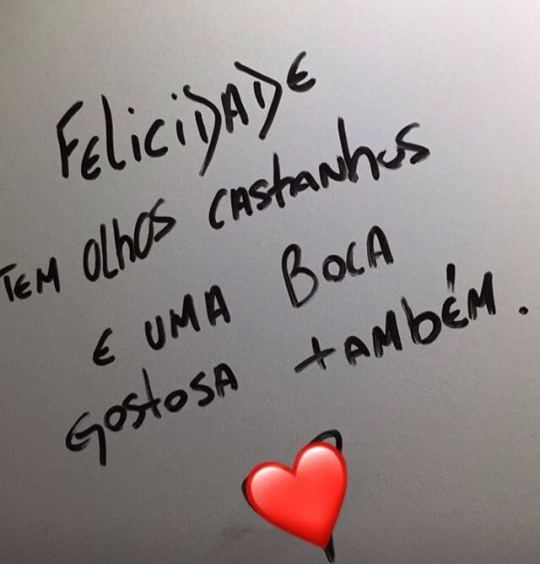 FELiciDADE
TEM OlhOS CASTANhOS
E UMA BOCA
GOSTOSA TAMbÉM.